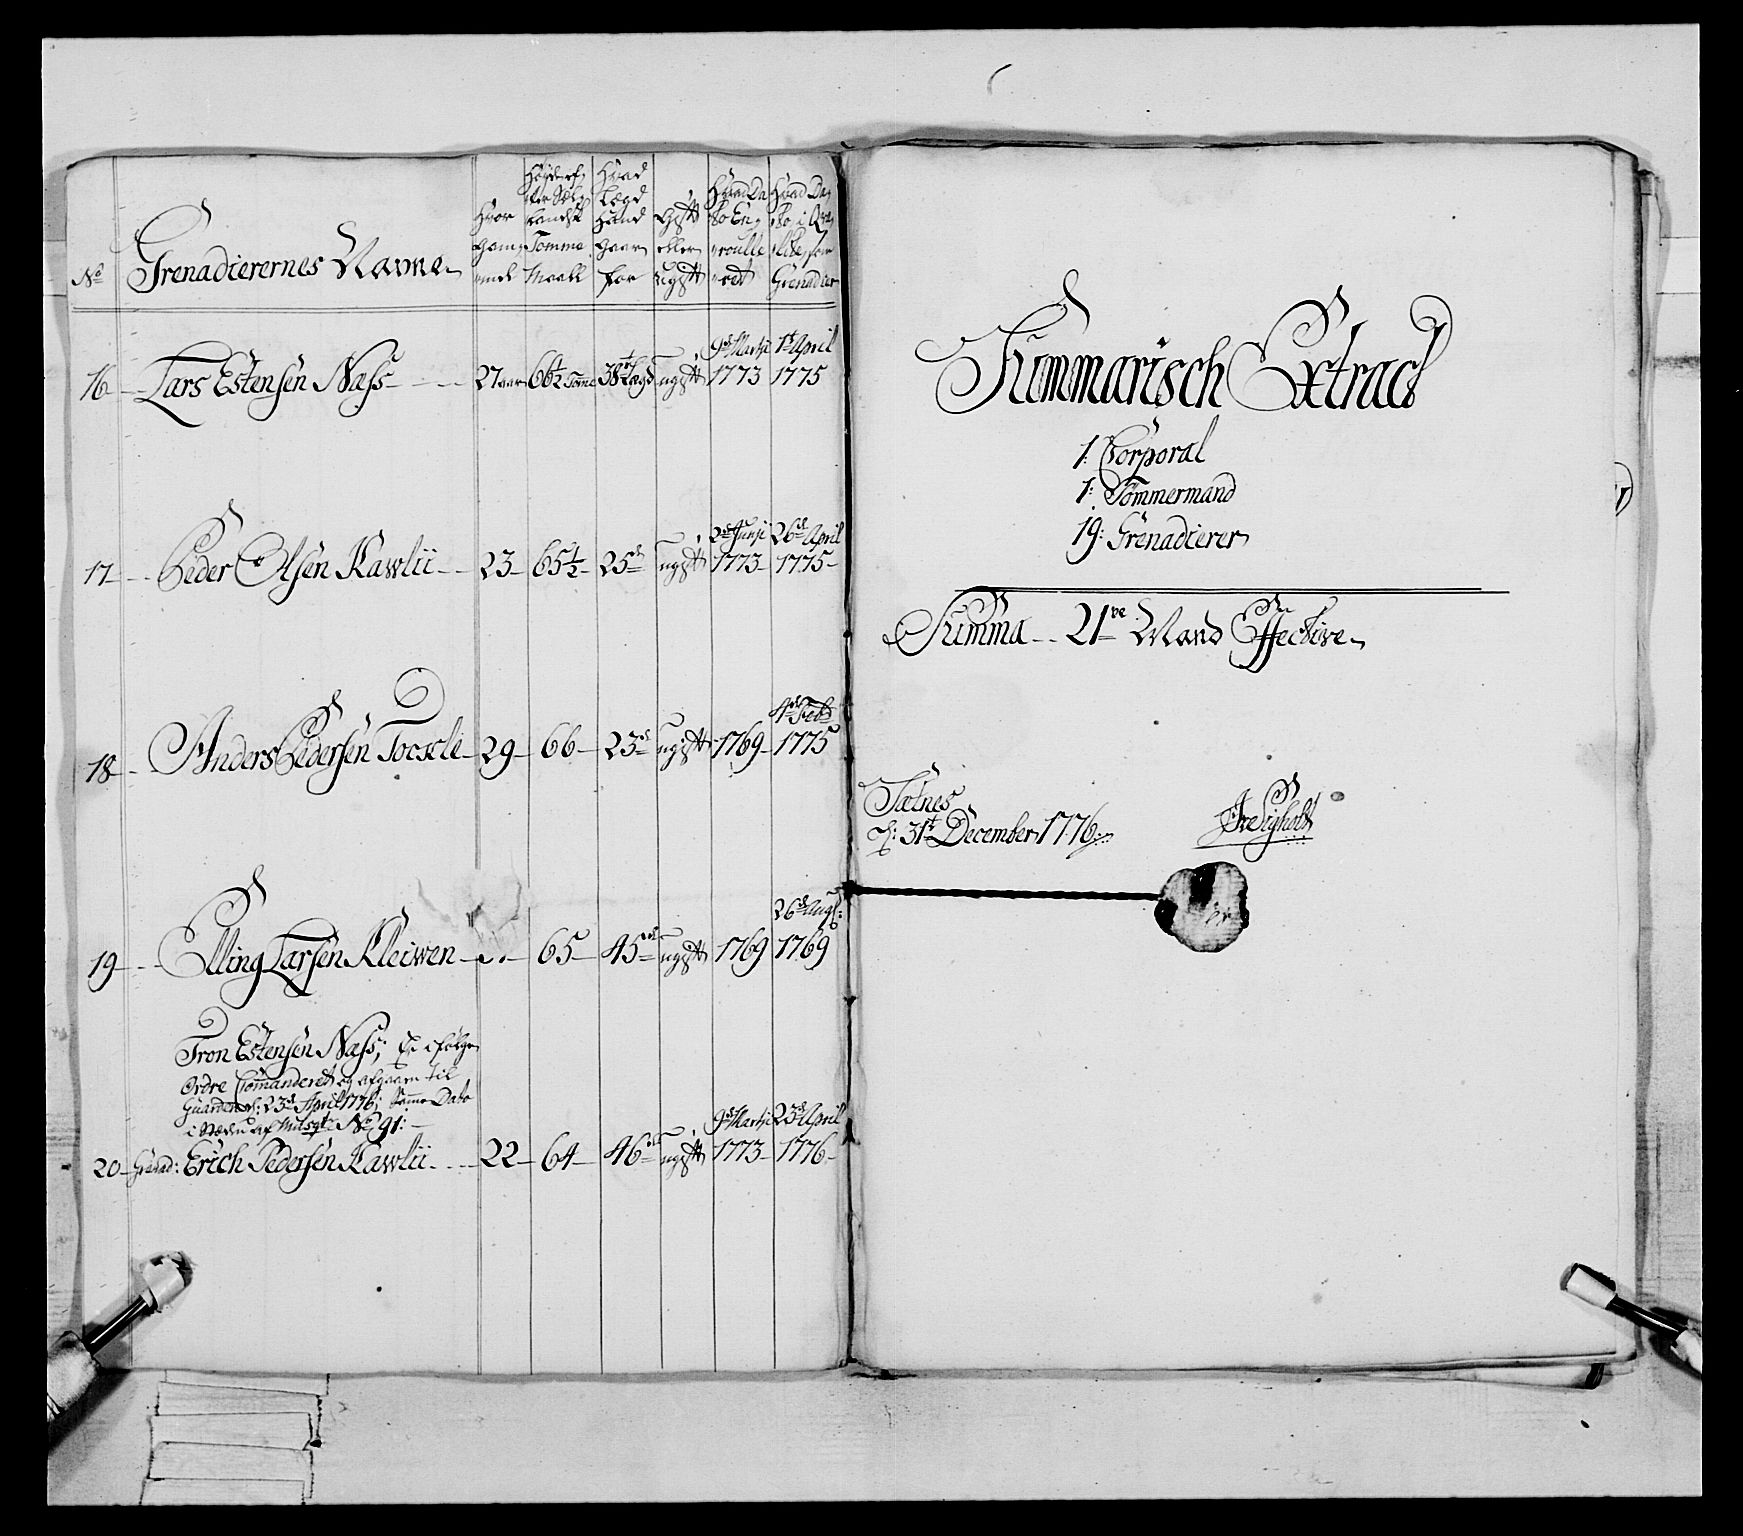 No
Grenadierernes Navne
Hvor
gam¬
mel
Høyde ef¬
ter Siel¬
landsk
Tomme
Maall
Hvad
Lægd
Hand
staar
for
Gift
eller
Ugift
Hvad Da
to En¬
roulle
ret
Hvad Da¬
to i Qva¬
litet som
Grenadier
16 Lars Estensen Næss 27 aar 66½ Tome 38te Lægd ugift 9de Martzi 1773 1te April 1775
17 Peder Olsen Kawlii 23 65½ 25de ugift 2de Junji 1773 26de April 1775
18 Anders Pedersen 29 66 23de ugift 1769 4de Feb 1775
19 Elling Larsen Kleiwen 65 45de ugift 1769 26de Aug: 1769
Tron Estensen Næss; Er ifølge
Ordre Comanderet og afgaaen til
Guarden d: 23de April 1776; Samme Dato
i Stæden af No 91:
20 Grenad: Erich Pedersen Kawlii 22 64 46de ugift 9de Martzi 1773 23de April 1776
Summarisch Extract
1: Corporal
1: Tömmermand
19: Grenadierer
Summa 21ve Mand Effective
Sætnes
d: 31te December 1776